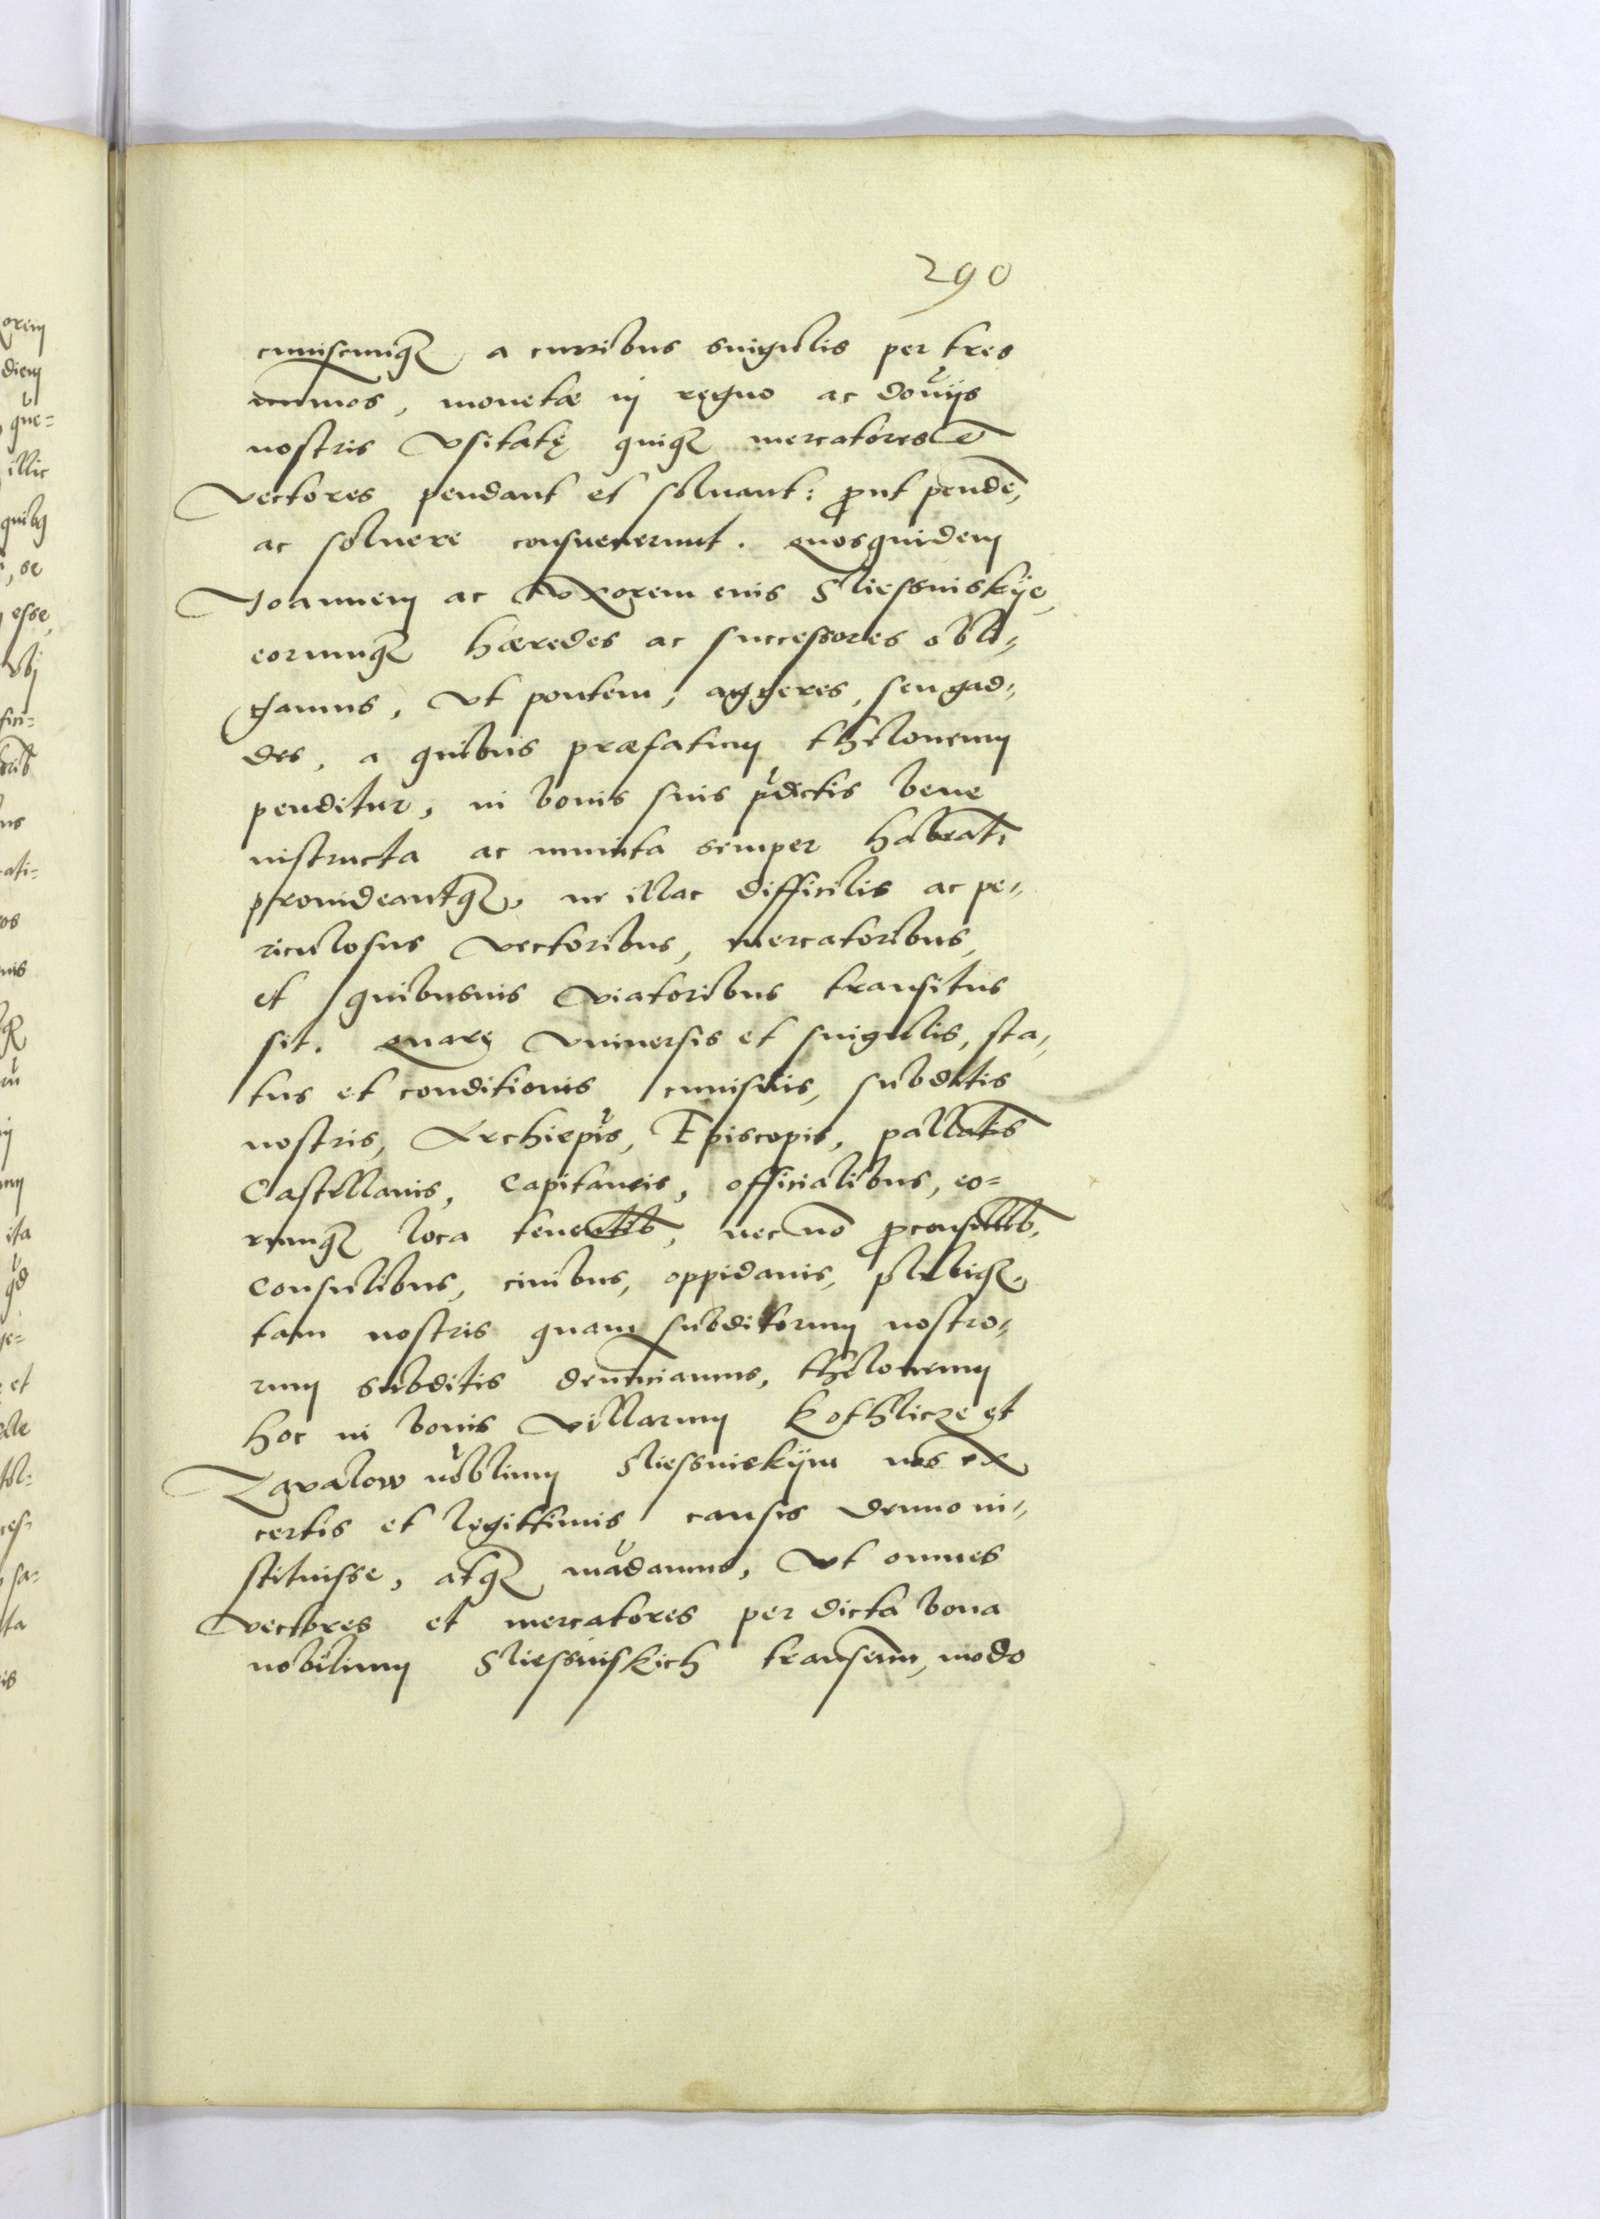 290
cuiuscunq[ue] a curribus singulis per tres
num̄mos, monetæ in regno ac dom̄ijs
nostris vsitatę quiq[ue] mercatores et
vectores pendant et soluant: put pendē,
ac soluere consueuerunt. Quosquidem
Joannem ac vxorem eius Sliessniskije,
eorumq[ue] hæredes ac successores obli-
gamus, vt pontem, aggeres, seu gad-
des, a quibus præfatum theloneum
penditur, in bonis suis p̄dictis bene
instructa ac munita semper habeāt,
prouideantq[ue], ne illac difficilis ac pe-
riculosus vectoribus, mercatoribus,
et quibusuis viatoribus transitus
sit. Quarę vniuersis et singulis, sta-
tus et conditionis cuiusuis, subditis
nostris, Archiepīs, Episcopis, pallatīs
Castellanis, Capitaneis, officialibus, eo-
rumq[ue] loca tenentib̄, nec nō proconsulib̄,
Consulibus, ciuibus, oppidanis, plebiq[ue],
tam nostris quam subditorum nostro-
rum subditis denūnciamus, theloneum
hoc in bonis villarum Kothlicze et
Zgvalow nōblium Sliessniskijm nos ex
certis et legittimis causis denuo in-
stituisse, atq[ue] mādamus, vt omnes
vectores et mercatores per dicta bona
nobilium Sliessniskich transeān, modo